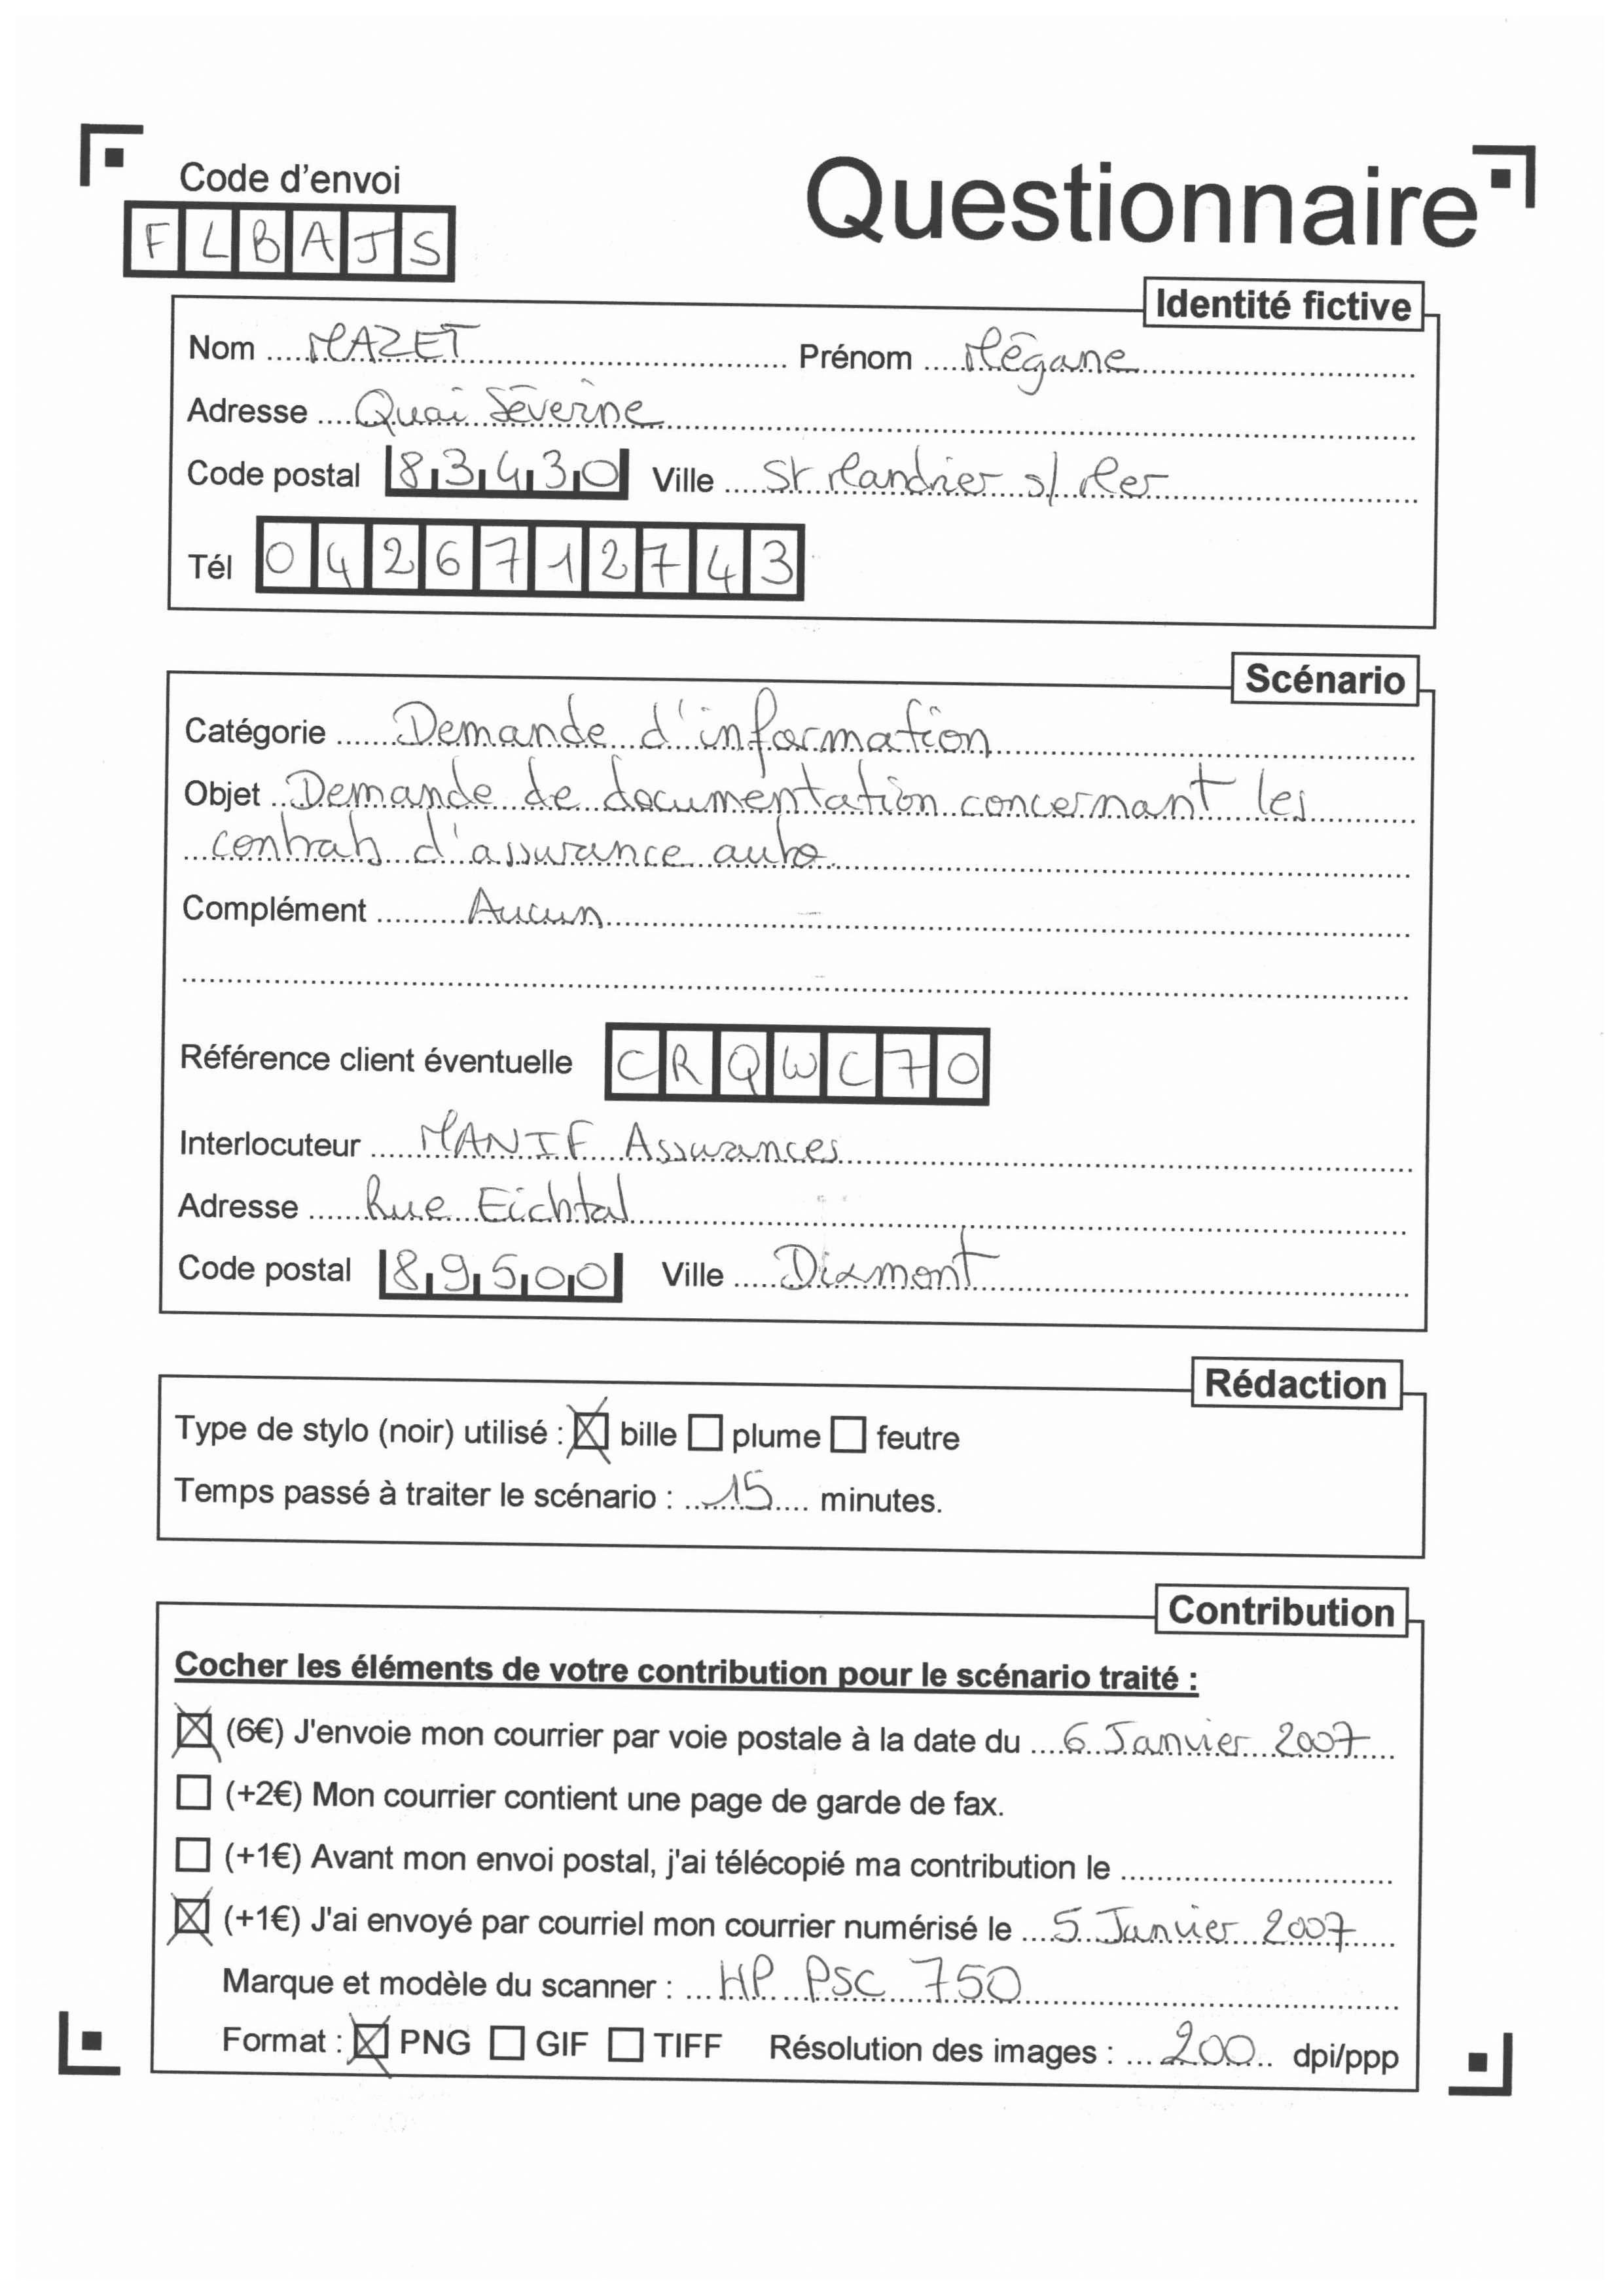 Code d'envoi
FLBAJS
Questionnaire
Identité fictive
Nom MAZET Prénom Mégane
Adresse Quai Séverine
Code postal 83430 Ville St Mandrier s/ Mer
Tél 0426712743
Scénario
Catégorie Demande d'information
Objet Demande de documentation concernant les
contrats d'assurance auto
Complément Aucun
Référence client éventuelle CRQWC70
Interlocuteur MANIF Assurances
Adresse Rue Eichtal
Code postal 89500 Ville Dixmont
Rédaction
Type de stylo (noir) utilisé : ☒ bille ☐ plume ☐ feutre
Temps passé à traiter le scénario : 15 minutes.
Contribution
Cocher les éléments de votre contribution pour le scénario traité :
☒ (6€) J'envoie mon courrier par voie postale à la date du 6 Janvier 2007
☐ (+2€) Mon courrier contient une page de garde de fax.
☐ (+1€) Avant mon envoi postal, j'ai télécopié ma contribution le
☒ (+1€) J'ai envoyé par courriel mon courrier numérisé le 5 Janvier 2007
Marque et modèle du scanner : HP PSC 750
Format : ☒ PNG ☐ GIF ☐ TIFF Résolution des images : 200 dpi/ppp